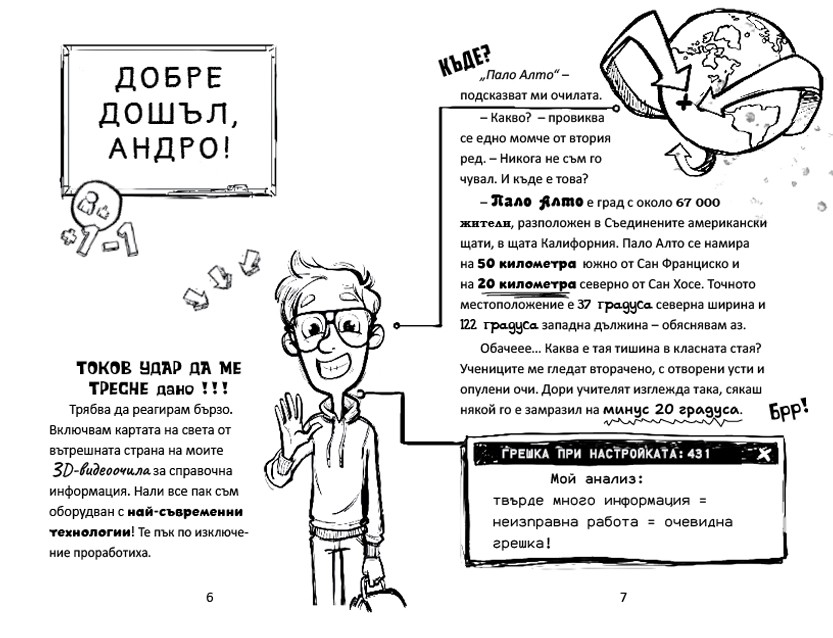 ДОБРЕ
ДОШЪЛ,
АНДРО!
+1-1
ТОКОВ УДАР ДА МЕ
ТРЕСНЕ дано !!!
Трябва да реагирам бързо.
Включвам картата на света от
вътрешната страна на моите
3D-видеоочила за справочна
информация. Нали все пак съм
оборудван с най-съвременни
технологии! Те пък по изключе-
ние проработиха.
6
КЪДЕ?
„Пало Алто“ –
подсказват ми очилата.
– Какво? – провиква
се едно момче от втория
ред. – Никога не съм го
чувал. И къде е това?
– Пало Алто е град с около 67 000
жители, разположен в Съединените американски
щати, в щата Калифорния. Пало Алто се намира
на 50 километра южно от Сан Франциско и
на 20 километра северно от Сан Хосе. Точното
местоположение е 37 градуса северна ширина и
122 градуса западна дължина – обяснявам аз.
Обачеее... Каква е тая тишина в класната стая?
Учениците ме гледат вторачено, с отворени усти и
опулени очи. Дори учителят изглежда така, сякаш
някой го е замразил на минус 20 градуса.
Брр!
ГРЕШКА ПРИ НАСТРОЙКАТА: 431 X
Мой анализ:
твърде много информация =
неизправна работа = очевидна
грешка!
7